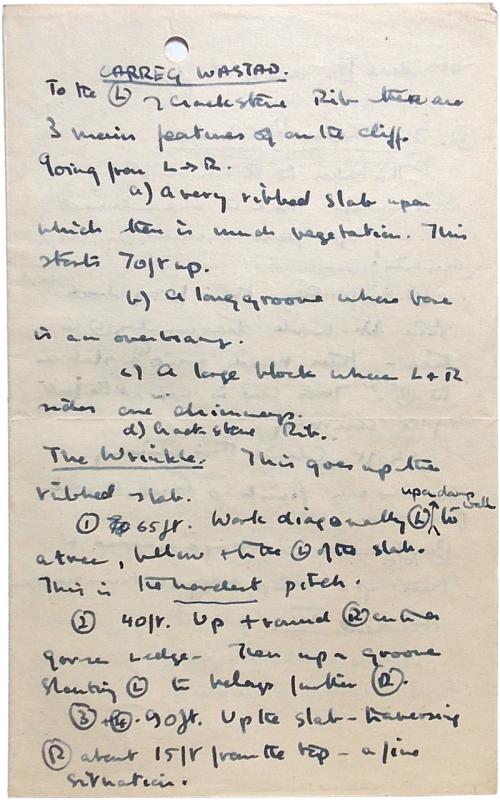 CARREG WASTAD.
To the Ⓛ of Crackstone Rib there are
3 main features of on the cliff.
Going from L→R.
a) A very ribbed slab upon
which there is much vegetation. This
starts 70ft up.
b) A long groove whose base
is an overhang.
c) A large block whose L+R
sides are chimneys.
d) Crackstone Rib.
The Wrinkle. This goes up the
ribbed slab.
up a damp walk
① 65ft. Work diagonally Ⓛ to
a tree, below + to the Ⓛ of the slab.
This is the hardest pitch.
② 40ft. Up + round Ⓡ on to a
gorse ledge - Then up a groove
slanting Ⓛ to belays further Ⓡ.
③ + ④. 90ft. Up the slab - traversing
Ⓡ about 15ft from the top - a fine
situation.